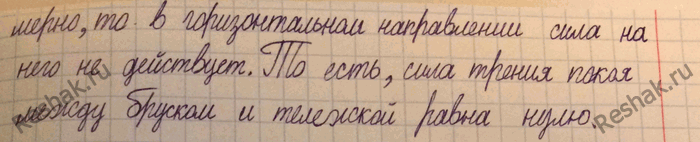 мерно, то в горизонтальном направлении сила на
него не действует. То есть, сила трения покоя
между бруском и тележкой равна нулю.
Reshak.ru
Reshak.ru